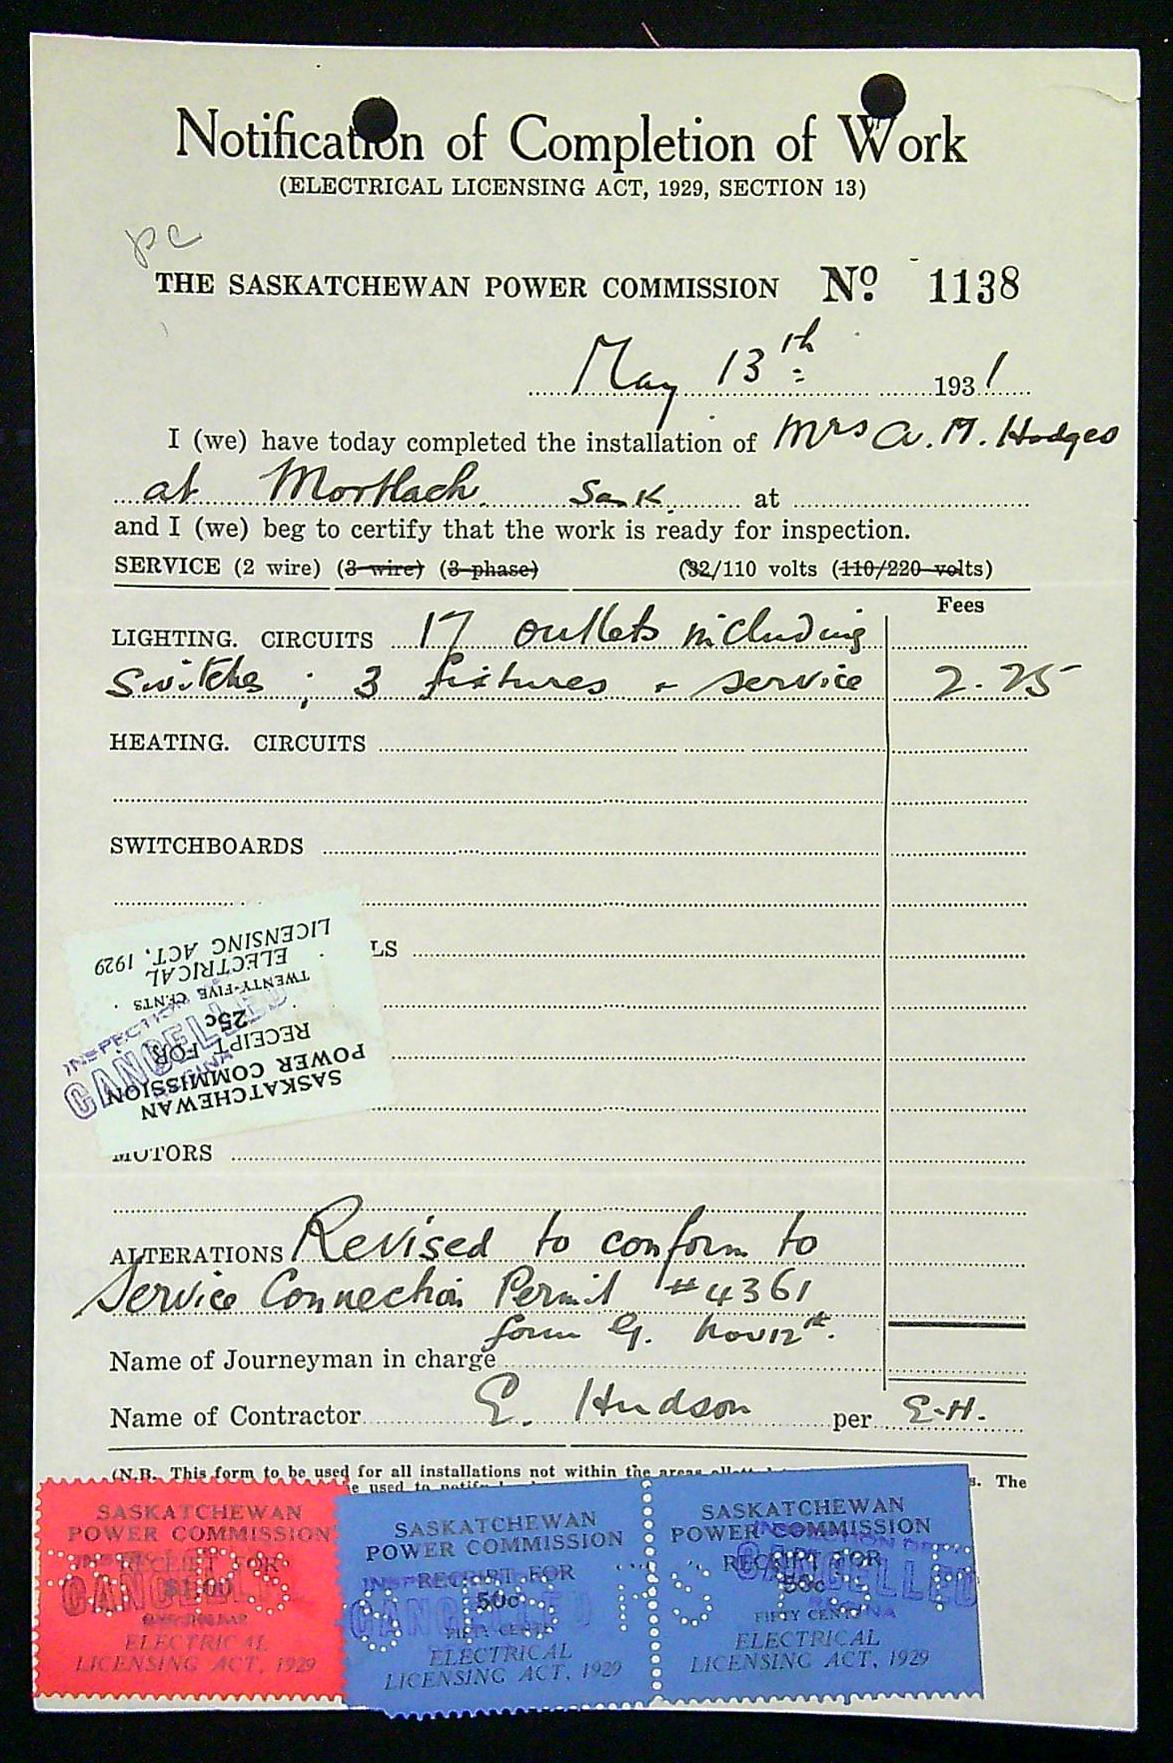 Notification of Completion of Work
(ELECTRICAL LICENSING ACT, 1929, SECTION 13)
pc
THE SASKATCHEWAN POWER COMMISSION No. 1138
May 13th 1931
I (we) have today completed the installation of Mrs A. M. Hodges
at Mortlach Sask. at
and I (we) beg to certify that the work is ready for inspection.
SERVICE (2 wire) (3 wire) (3 phase) (32/110 volts (110/220 volts)
Fees
LIGHTING. CIRCUITS 17 outlets including
Switches ; 3 fixtures + service 2.25
HEATING. CIRCUITS
SWITCHBOARDS
LS
SASKATCHEWAN
POWER COMMISSION
RECEIPT FOR
25c
TWENTY-FIVE CENTS
ELECTRICAL
LICENSING ACT, 1929
INSPECTION
CANCELLED
REGINA
MOTORS
ALTERATIONS Revised to conform to
Service Connection Permit #4361
form G. Nov 12th.
Name of Journeyman in charge
Name of Contractor E. Hudson per E.H.
(N.B. This form to be used for all installations not within the areas
s. The
e used to
SASKATCHEWAN
POWER COMMISSION
RECEIPT FOR
$1.00
ELECTRICAL
LICENSING ACT, 1929
CANCELLED
SASKATCHEWAN
POWER COMMISSION
RECEIPT FOR
50c
FIFTY CENTS
ELECTRICAL
LICENSING ACT, 1929
CANCELLED
SASKATCHEWAN
POWER COMMISSION
RECEIPT FOR
50c
FIFTY CENTS
ELECTRICAL
LICENSING ACT, 1929
INSPECTION DEPT
CANCELLED
REGINA